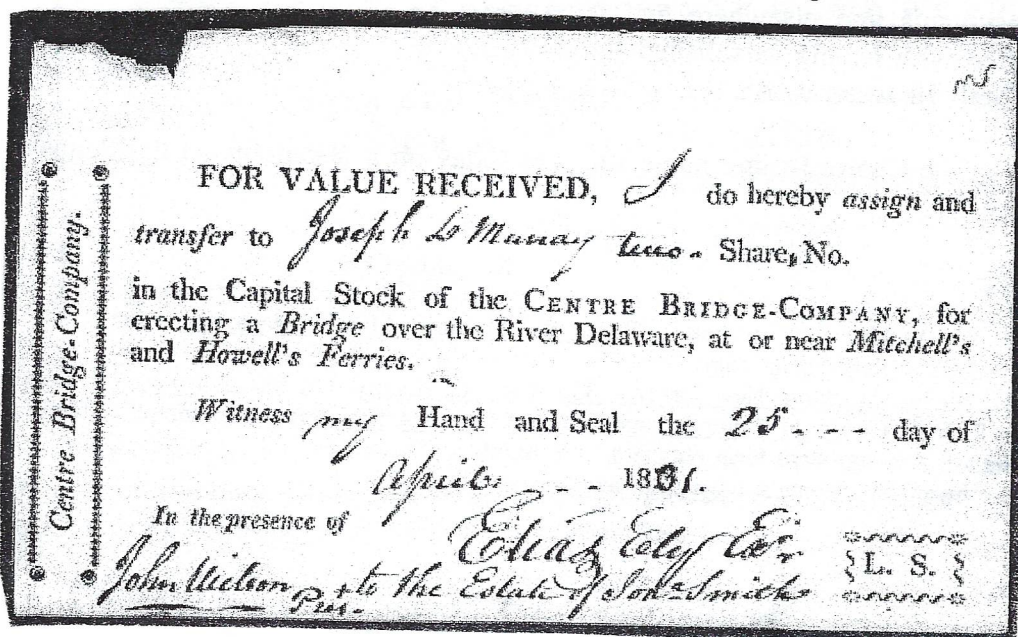 Centre Bridge-Company.
FOR VALUE RECEIVED, I do hereby assign and
transfer to Joseph D Murray two - Share, No.
in the Capital Stock of the CENTRE BRIDGE-COMPANY, for
erecting a Bridge over the River Delaware, at or near Mitchell's
and Howell's Ferries.
Witness my Hand and Seal the 25 - - - day of
April - - 1831.
In the presence of
Elias Ely Exr
L. S.
John Wilson Pres. to the Estate of Jona Smith